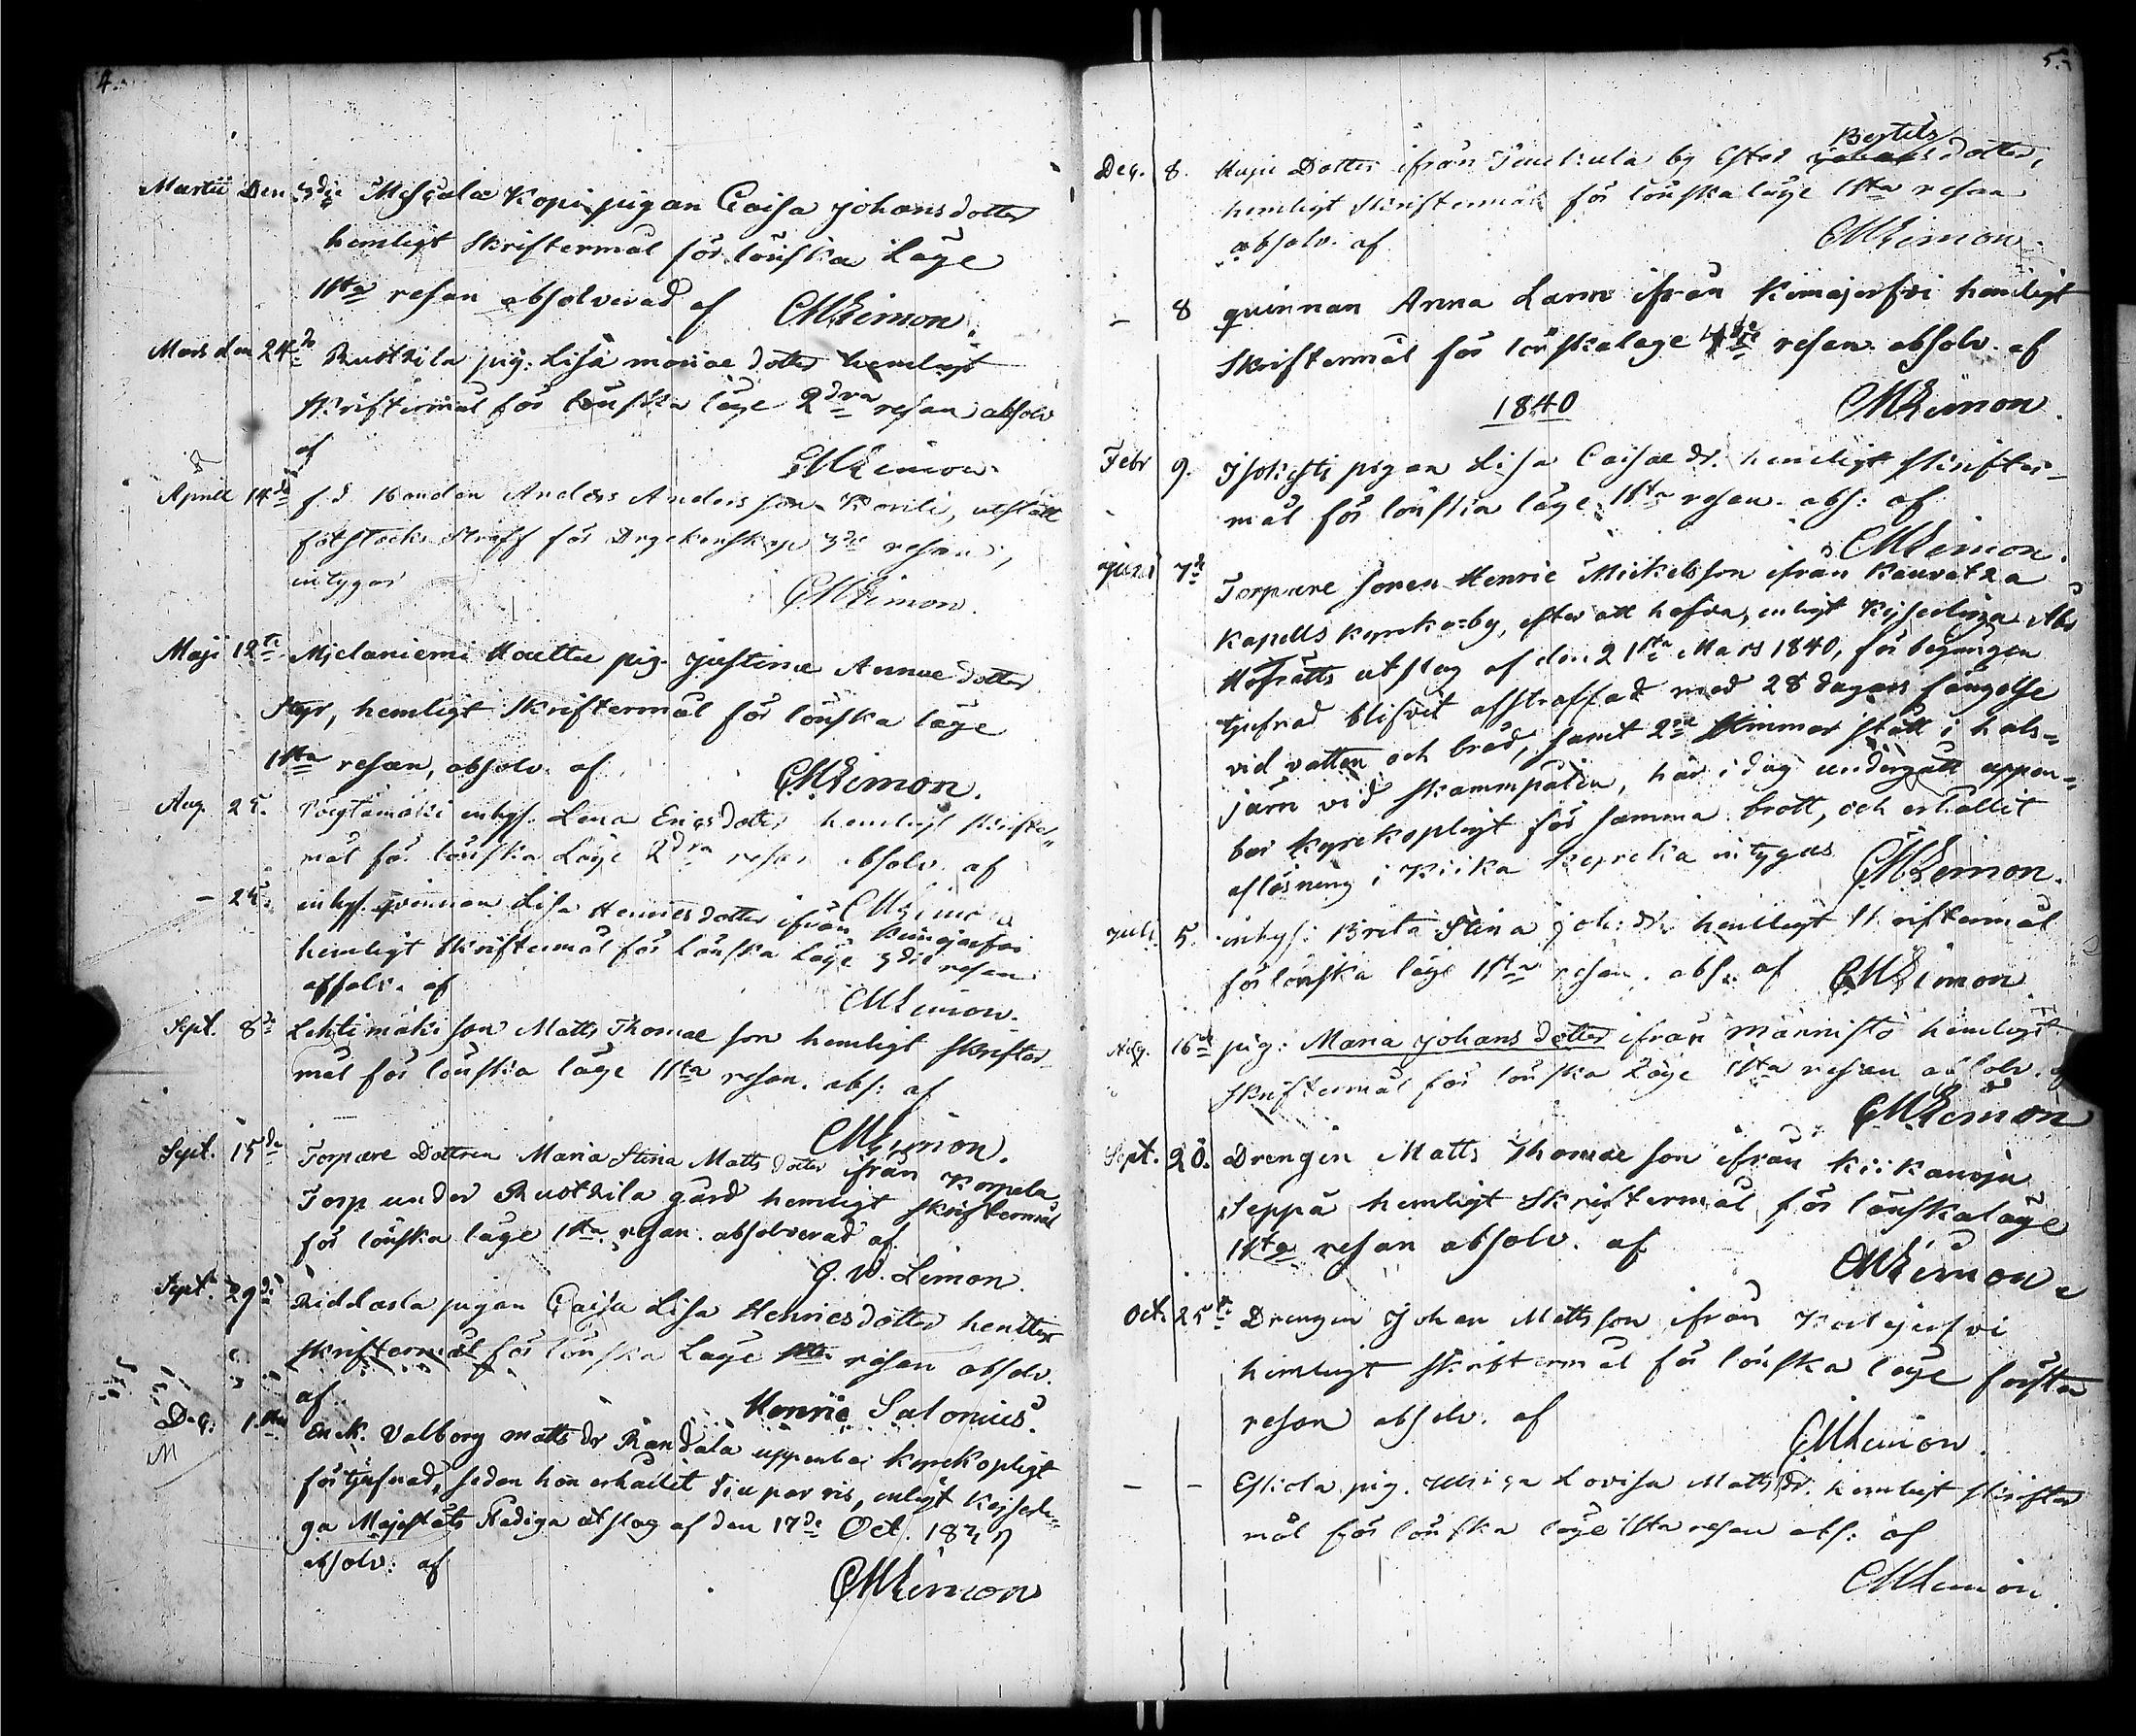 4.
Martii Den 3die Mesçala Kopi pigan Caisa Johansdotter
hemligt Skriftermål för lönska Läge
1sta resan absolverad af CMLimon.
Mars den 24de Rustkila pig. Lisa mariæ dotter hemligt
Skriftermål för lönska läge 2dra resan absolv
af
CMLimon.
Aprill 14de f.d. Anders Andersson utstått
fotstocks Straff för Dryckenskap 3de resan,
intygar
CMLimon.
Maji 12te Mjelaniemi pig. Justina Annæ dotter
Styr, hemligt Skriftermål för lönska läge
1sta resan, absolv. af
CMLimon.
Aug. 25. inhys. Lena Ericsdotter hemligt skrifter-
mål för lönska Läge 2dra resan absolv. af
CMLimon
– 25. inhys. qvinnan Lisa Henricsdotter ifrån Kimojerfvi
hemligt Skriftermål för Lönska Läge 3die resan
absolv. af
CMLimon.
Sept. 8de Lehtimäki son Matts Thomæ son hemligt skrifter-
mål för lönska läge 1sta resan. abs: af
CMLimon.
Sept. 15de Torpare Dottren Maria Stina Matts dotter ifrån Korpela
Torp under Rustkila gård hemligt skriftermål
för lönska läge 1sta resan. absolverad af
G. W. Limon
Sept. 29de Riddasla pigan Caisa Lisa Henricsdotter
skriftermål för lönska Läge resan absolv.
af
Henric Salonius.
Dec. 1sta Enk. Valborg matts dr Randala uppenbar kyrkopligt
för tjufnad, sedan hon erhållit par ris, enligt Kejserli-
ga Majestäts Nådiga utslag af den 17de Oct.
absolv: af
CMLimon
5.
Bertils
Dec. 8. Dotter ifrån by Ester Johansdotter,
hemligt Skriftermål för lönskaläge 1sta resan
absolv. af
CMLimon.
– 8 qvinnan Anna ifrån Kimojerfvi hemligt
Skriftermål för lönskaläge 4de resan. absolv. af
1840 CMLimon.
Febr 9. pigan Lisa Caisæ dr. hemligt skrifter-
mål för lönska läge 1sta resan. abs: af
CMLimon.
Juni 7de Torpare sonen Henric Mickelsson ifrån Kauvatza
Kapells kyrkoby, efter att hafva, enligt Kejserliga Åbo
Hofrätts utslag af den 21sta Mars 1840, för begången
tjufnad blifvit afstraffad med 28 dagars fängelse
vid vatten och bröd, samt 2ne timmar stått i hals-
järn vid skampålen, här i dag undergått uppen-
bar kyrkopligt för samma brott, och erhållit
aflösning i Kiika kyrcka intygas CMLimon.
Juli 5. inhys: Breta Stina Joh: dr. hemligt Skriftermål
för lönska läge 1sta resan. abs: af CMLimon
Aug. 16de pig: Maria Johans dotter ifrån Männistö hemligt
Skriftermål för lönska Läge 1sta resan absolv. af
CMLimon
Sept. 20. Drengen Matts Thomæ son ifrån Kiikanoja
Seppä hemligt Skriftermål för lönskaläge
1sta resan absolv. af
CMLimon.
Oct. 25te Drengen Johan Mattsson ifrån
hemligt skriftermål för lönska läge första
resan absolv. af
CMLimon.
– – Eskola pig. Ulrica Lovisa Matts dr. hemligt skrifter
mål för lönska läge 1sta resan abs: af
CMLimon.